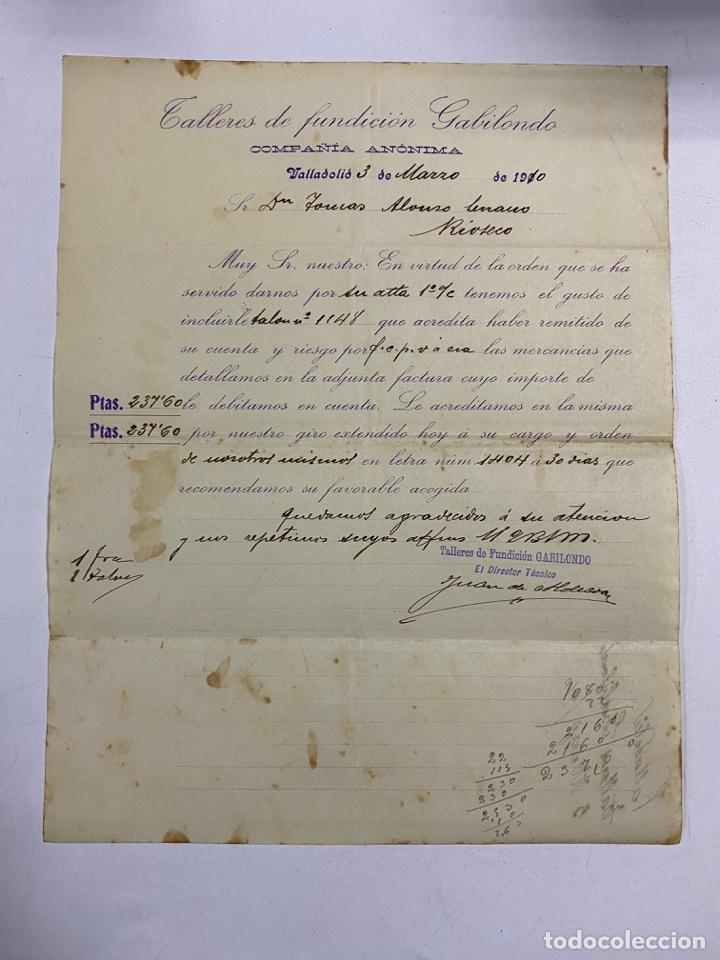 Talleres de fundición Gabilondo
COMPAÑIA ANÓNIMA
Valladolid 3 de Marzo de 1910
Sr Dn Tomas Alonso
Rioseco
Muy Sr. nuestro: En virtud de la orden que se ha
servido darnos por su atta 1º % tenemos el gusto de
incluirle talon nº 1148 que acredita haber remitido de
su cuenta y riesgo por f.c.p.v á esa las mercancías que
detallamos en la adjunta factura cuyo importe de
Ptas. 237'60 le debitamos en cuenta. Le acreditamos en la misma
Ptas. 237'60 por nuestro giro extendido hoy á su cargo y orden
de nosotros mismos en letra núm 1404 á 30 dias que
recomendamos su favorable acogida
Quedamos agradecidos á su atencion
y nos repetimos suyos affmos
Talleres de Fundición GABILONDO
El Director Técnico
Juan de
1 fra
1 talon
22
115
230
2160
2160
todocoleccion
todocoleccion.net